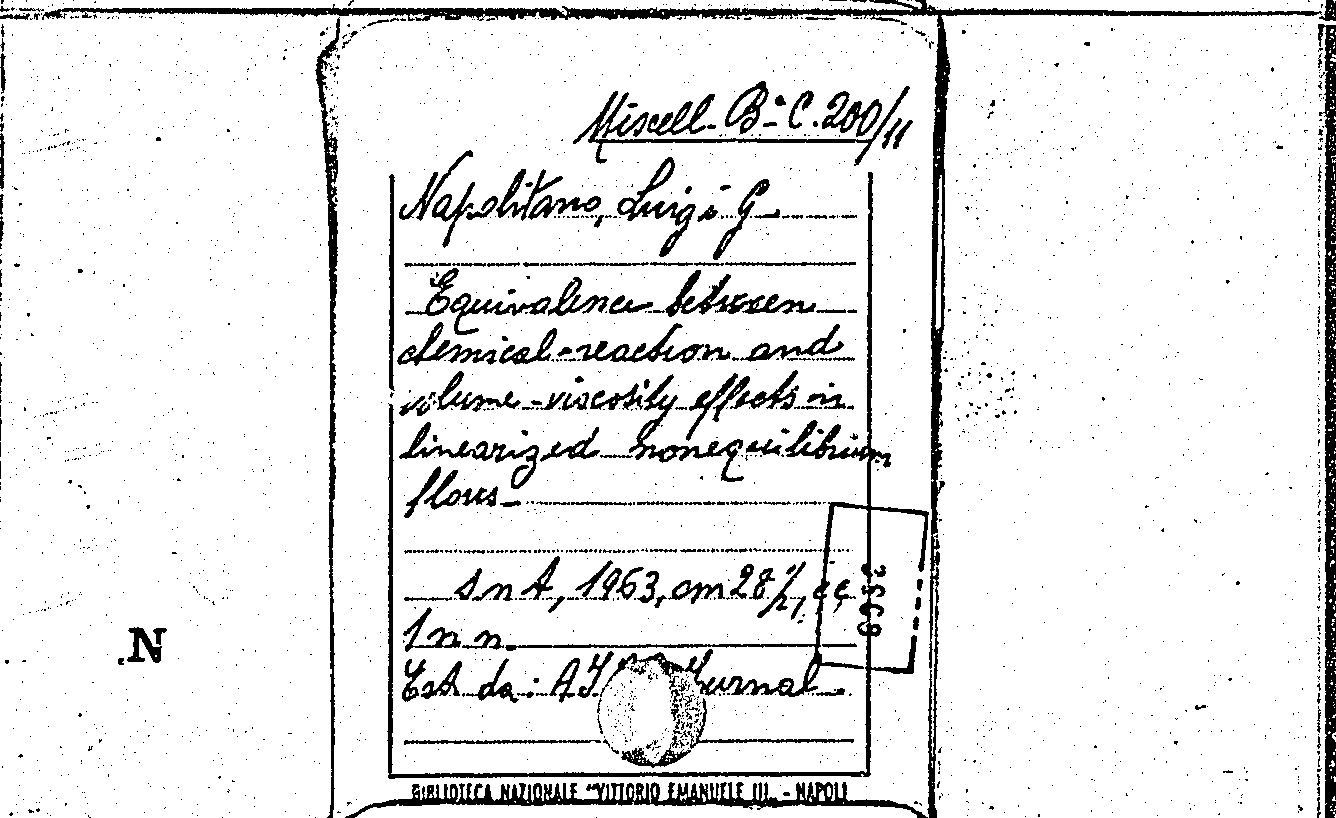 Miscell. Bª C. 200/11
Napolitano, Luigi G.
Equivalence between
chemical-reaction and
volume-viscosity effects in
linearized nonequilibrium
flows-
s n t, 1963, cm 28 1/2,
1 n n.
Est. da: Journal.
N
BIBLIOTECA NAZIONALE "VITTORIO EMANUELE III" - NAPOLI